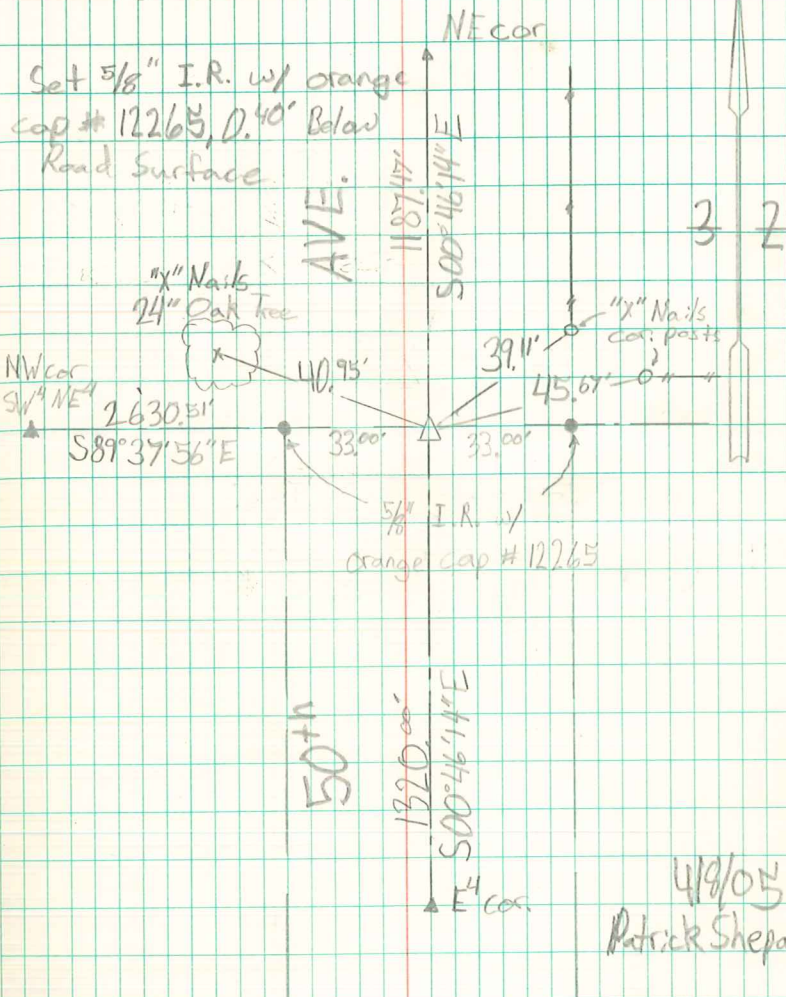 NE cor
Set 5/8" I.R. w/ orange
cap # 12265, 0.40' Below
Road Surface
AVE.
1187.47'
S00°46'14"E
3 2
"X" Nails
24" Oak Tree
x
"X" Nails
cor. posts
NW cor
SW4 NE4
40.95'
39.11'
45.67'
2630.51'
S89°37'56"E
33.00' 33.00'
5/8" I.R. w/
orange cap # 12265
50th
1320.00'
S00°46'14"E
E4 cor.
4/8/05
Patrick Shepa